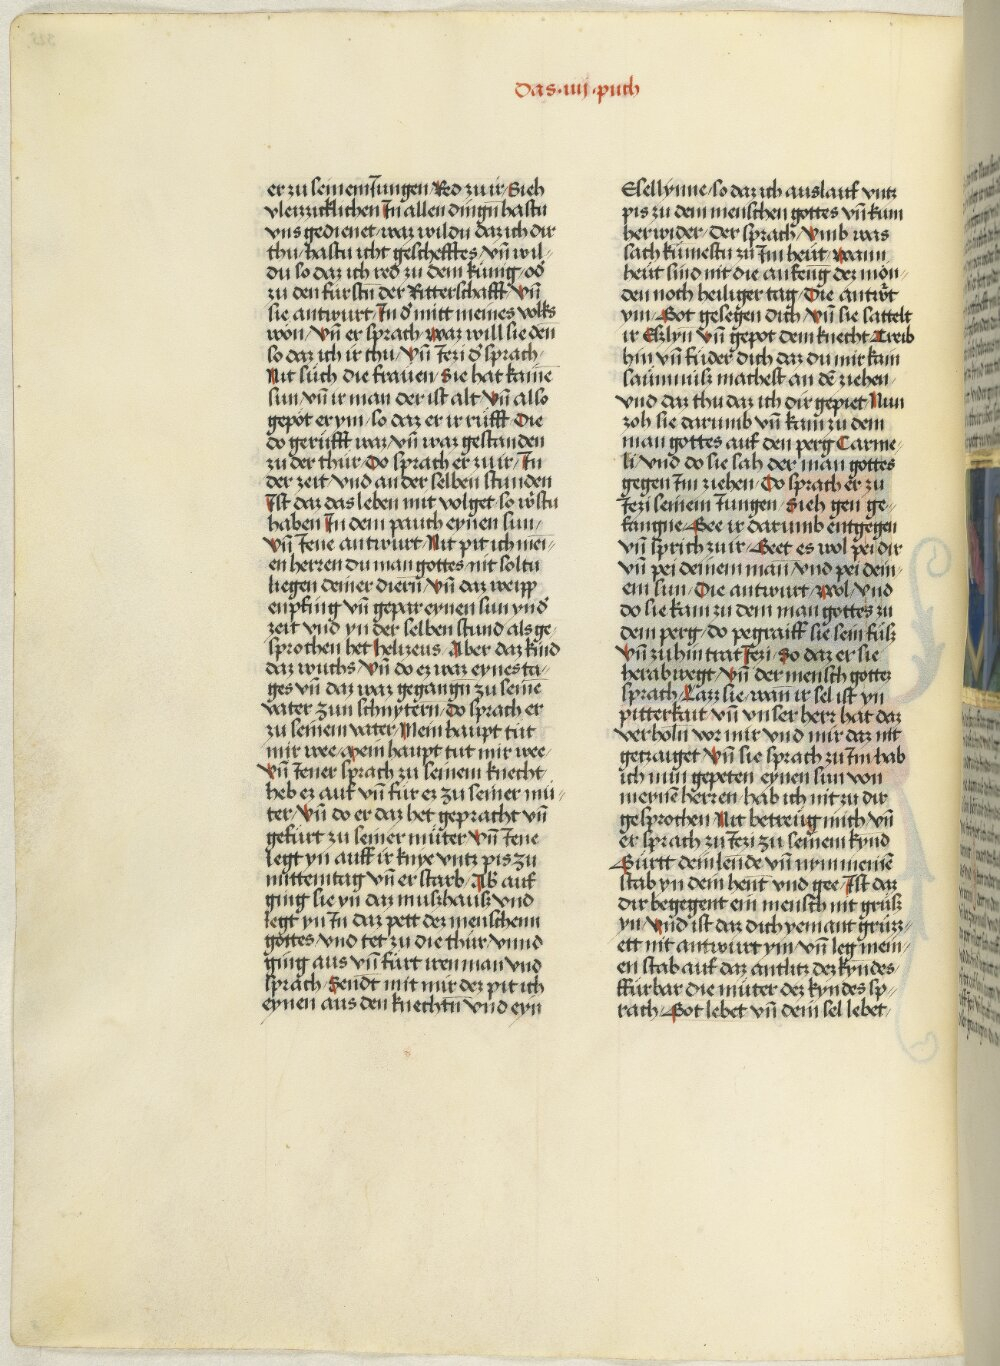 Das·iiij·puch
er zu seinem Jungen/Red zu ir/Sieh
vleizziklichen In allen dingn̄ hastu
vns gedienet/waz wildu daz ich dir
thu/hastu icht geschefftes/vn̄ wil-
du so daz ich red zu dem kunig/od̄
zu den fursten̄ der Ritterschafft/Vn̄
sie antwurt/In d̄ mitt meines volks
won/Vn̄ er sprach/waz will sie den
so daz ich ir thu/Vn̄ Jezi d̄ sprach/
Nit such die frauen/Sie hat kaine
sun/vn̄ ir man der ist alt/Vn̄ also
gepot er ym/so daz er ir rufft/Die
do gerufft waz/vn̄ waz gestanden
zu der thur/Do sprach er zu ir/In
der zeit/vnd an der selben stunden
Ist daz das leben mit volget/so wstu
haben In dem pauch eynen sun/
Vn̄ Jene antwurt/Nit pit ich mei-
en herren du man gottes/nit soltu
liegen deiner diern̄/Vn̄ daz weipp
enpfing vn̄ gepar eynen sun ynd̄
zeit vnd yn der selben stund/als ge-
sprochen het helizeus/Aber daz kind
daz wuchs/Vn̄ do ez waz eynes ta-
ges vn̄ daz waz gegangn̄ zu seine
vater zun schnytern/Do sprach er
zu seinem vater/Mein haupt tut
mir wee/mein haupt tut mir wee/
Vn̄ Jener sprach zu seinem knecht
heb ez auf vn̄ fur ez zu seiner mu-
ter/Vn̄ do er daz het gepracht vn̄
gefurt zu seiner muter/Vn̄ Jene
legt yn auff ir knye vntz pis zu
mittemtag vn̄ er starb/Ab auf
ging sie yn daz mushaus/vnd
legt yn In daz pett dez menschenn
gottes/vnd tet zu die thur/vnnd
ging aus vn̄ furt iren man vnd
sprach/Sendt mit mir dez pit ich
eynen aus den knechtn̄ vnd eyn
Esellynne/so daz ich auslauf vntz
pis zu dem menschen gottes vn̄ kum
her wider/Der sprach/Vmb was
sach kumestu zu Im heut/wann
heut sind nit die anfeng dez mon-
den noch heiliger tag/Die antwt
ym/Got gesegen dich/Vn̄ sie sattelt
ir Eszlyn/vn̄ gepot dem knecht/Treib
hin vn̄ fuder dich daz du mir kain
saumnusz machest an dē ziehen/
Vnd daz thu daz ich dir gepiet/Nun
zoh sie darumb vn̄ kam zu dem
man gottes auf den perg Carme-
li/vnd do sie sah der man gottes
gegen Im ziehen/Do sprach er zu
Jezi seinem Jungen/Sieh gen ge-
fangne/Gee ir darumb entgegen
vn̄ sprich zu ir/Geet es wol pei dir
vn̄ pei deinem man/vnd pei dein-
em sun/Die antwurt/wol/vnd
do sie kam zu dem man gottes zu
dem perg/do pegraiff sie sein fusz
Vn̄ zuhin trat Jezi/So daz er sie
herab wegt/Vn̄ der mensch gottez
sprach/Lazz sie/wan̄ ir sel ist yn
pitterkait vn̄ vnser herr hat daz
verholn̄ vor mir vnd mir daz nit
getzauget/Vn̄ sie sprach zu Im/hab
ich nun gepeten eynen sun von
meynē herren/hab ich nit zu dir
gesprochen/Nit betreug mich/vn̄
er sprach zu Jezi zu seinem kynd
Gurtt dein lende vn̄ nym meinē
stab yn dein hent vnd gee/Ist daz
dir begegent ein mensch nit grusz
yn/Vn̄d ist daz dich yemant gruzz-
ett nit antwurt ym/vn̄ leg mein-
en stab auf daz antlitz dez kyndes/
ffurbar die muter dez kyndes sp-
rach/Got lebet vn̄ dein sel lebet/